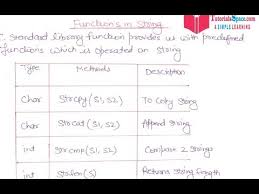 Functions in String
TutorialsSpace.com
A SIMPLE LEARNING
Standard library function provides us with predefined
functions which is operated on string
Type Methods Description
Char Strcpy(S1, S2) To Copy String
Char StrCat(S1, S2) Append String
int Strcmp(S1, S2) Compare 2 Strings
int Strlen(S) Returns String Length